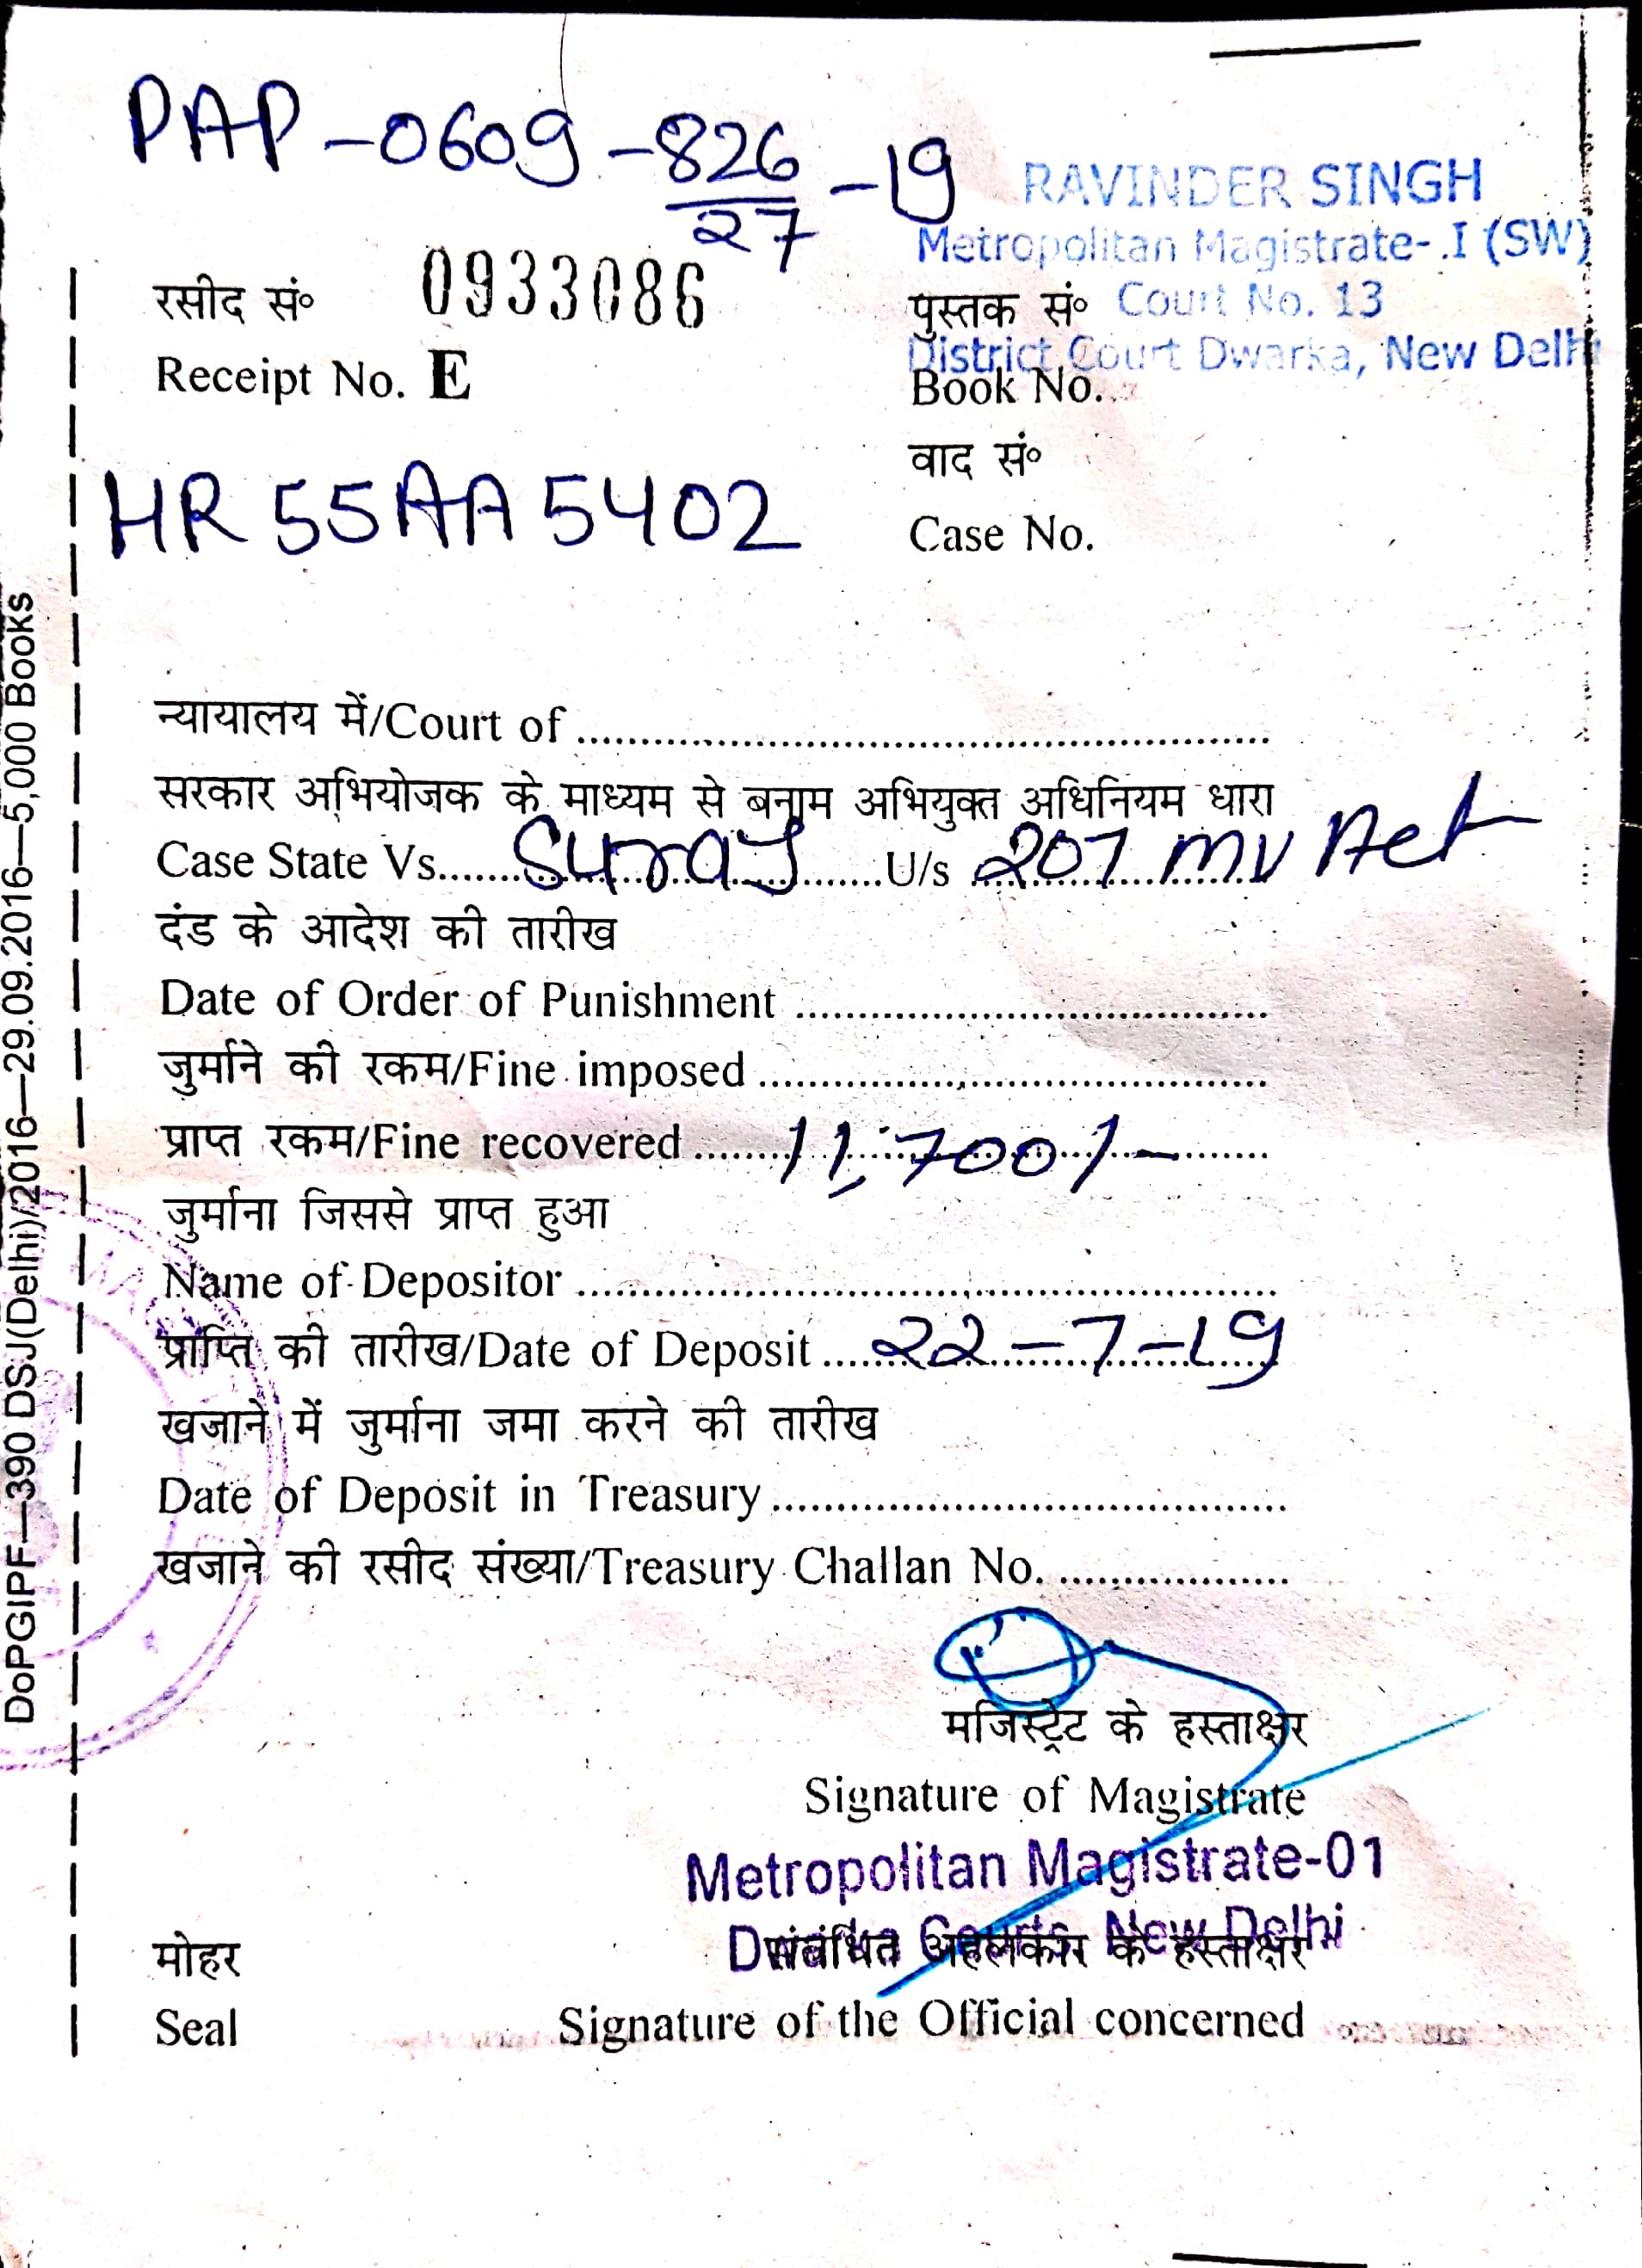 PAP-0609-826/27-19
RAVINDER SINGH
Metropolitan Magistrate-.I (SW)
रसीद सं० 0933086
पुस्तक सं० Court No. 13
District Court Dwarka, New Delhi
Receipt No. E
Book No.
वाद सं०
HR 55AA 5402
Case No.
न्यायालय में/Court of
सरकार अभियोजक के माध्यम से बनाम अभियुक्त अधिनियम धारा
Case State Vs. Suraj U/s 207 MV Act
दंड के आदेश की तारीख
Date of Order of Punishment
जुर्माने की रकम/Fine imposed
प्राप्त रकम/Fine recovered 11,700/-
जुर्माना जिससे प्राप्त हुआ
Name of Depositor
प्राप्ति की तारीख/Date of Deposit 22-7-19
खजाने में जुर्माना जमा करने की तारीख
Date of Deposit in Treasury
खजाने की रसीद संख्या/Treasury Challan No.
मजिस्ट्रेट के हस्ताक्षर
Signature of Magistrate
Metropolitan Magistrate-01
Dwarka Courts, New Delhi
मोहर संबंधित अहलकार के हस्ताक्षर
Seal Signature of the Official concerned
DoPGIPF—390 DSJ(Delhi)/2016—29.09.2016—5,000 Books